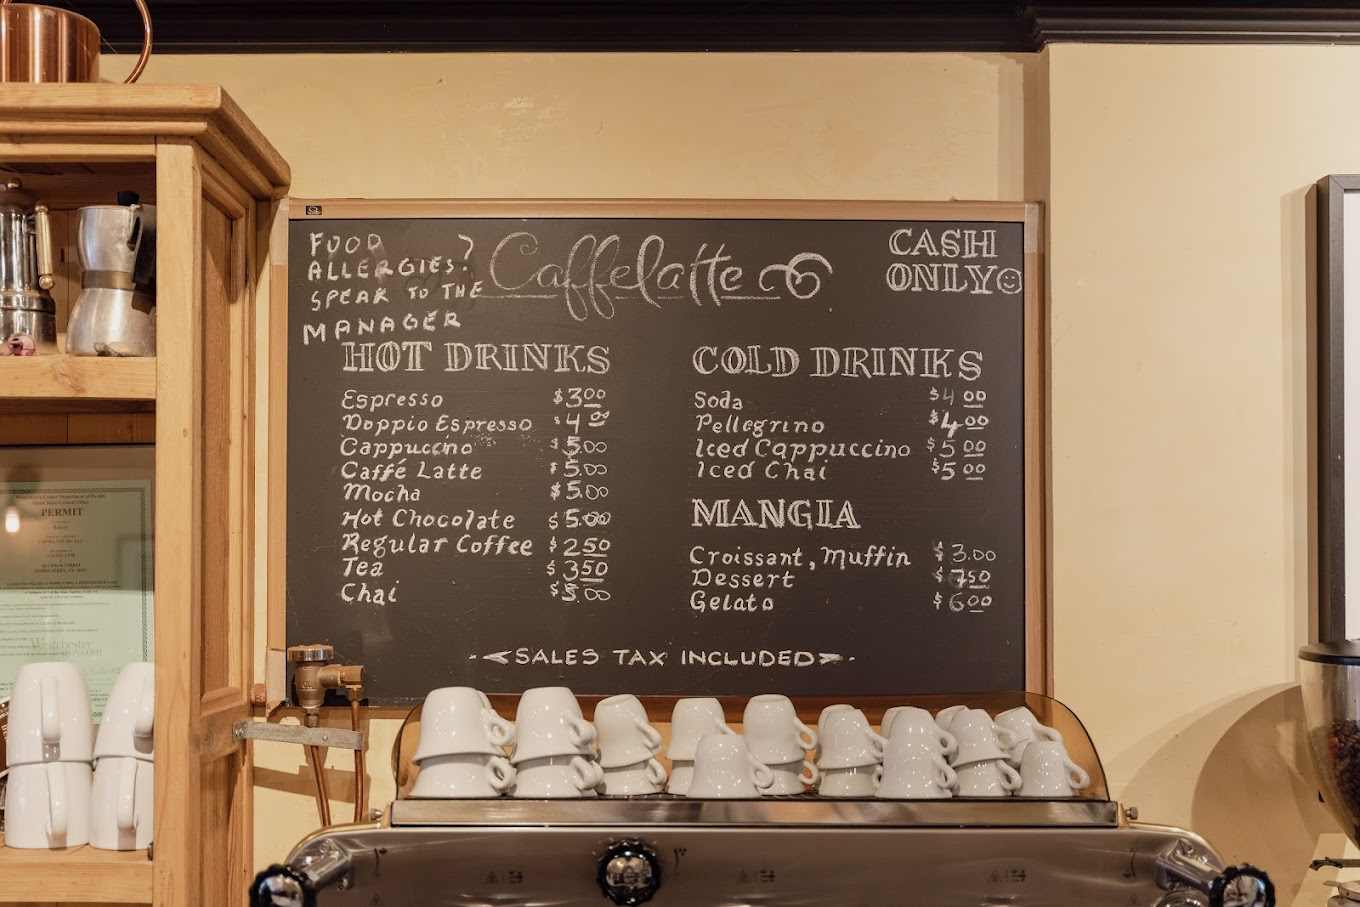 FOOD ALLERGIES?
SPEAK TO THE
MANAGER
Caffelatte
CASH
ONLY
HOT DRINKS
Espresso $3.00
Doppio Espresso $4.00
Cappuccino $5.00
Caffé Latte $5.00
Mocha $5.00
Hot Chocolate $5.00
Regular Coffee $2.50
Tea $3.50
Chai $5.00
COLD DRINKS
Soda $4.00
Pellegrino $4.00
Iced Cappuccino $5.00
Iced Chai $5.00
MANGIA
Croissant, Muffin $3.00
Dessert $7.50
Gelato $6.00
SALES TAX INCLUDED
PERMIT
Westchester
gov.com